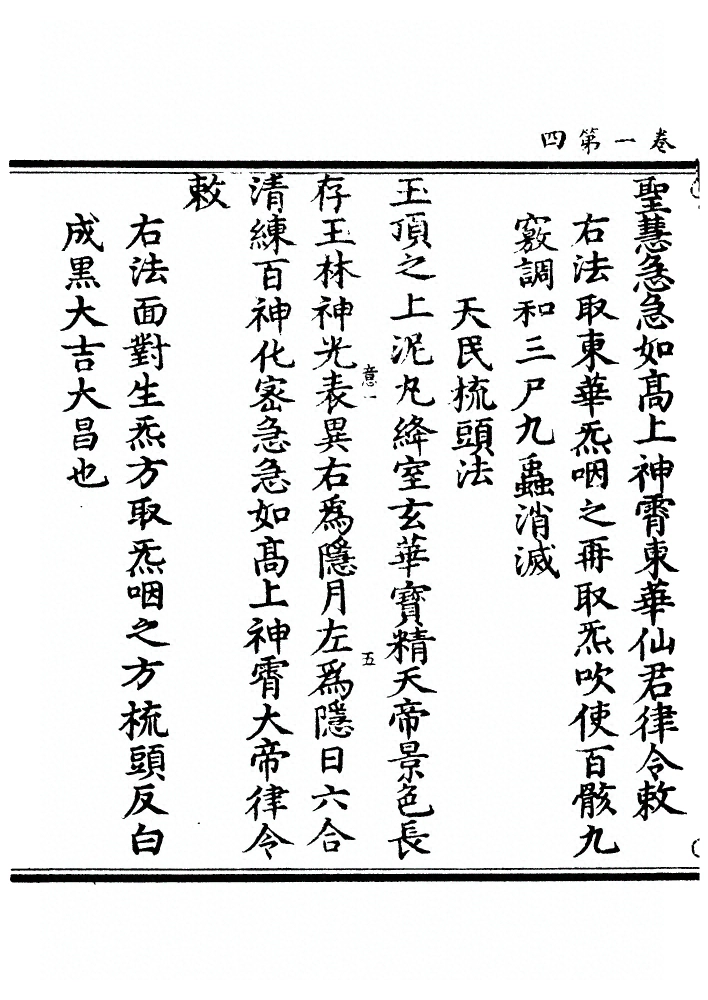 卷一第四
聖慧急急如髙上神霄東華仙君律令敕
右法取東華炁咽之再取炁吹使百骸九
竅調和三尸九蟲消滅
天民梳頭法
玉頂之上泥丸絳室玄華寶精天帝景色長
存玉林神光表異右爲隱月左爲隱日六合
清練百神化密急急如髙上神霄大帝律令
敕
右法面對生炁方取炁咽之方梳頭反白
成黒大吉大昌也
意一
五